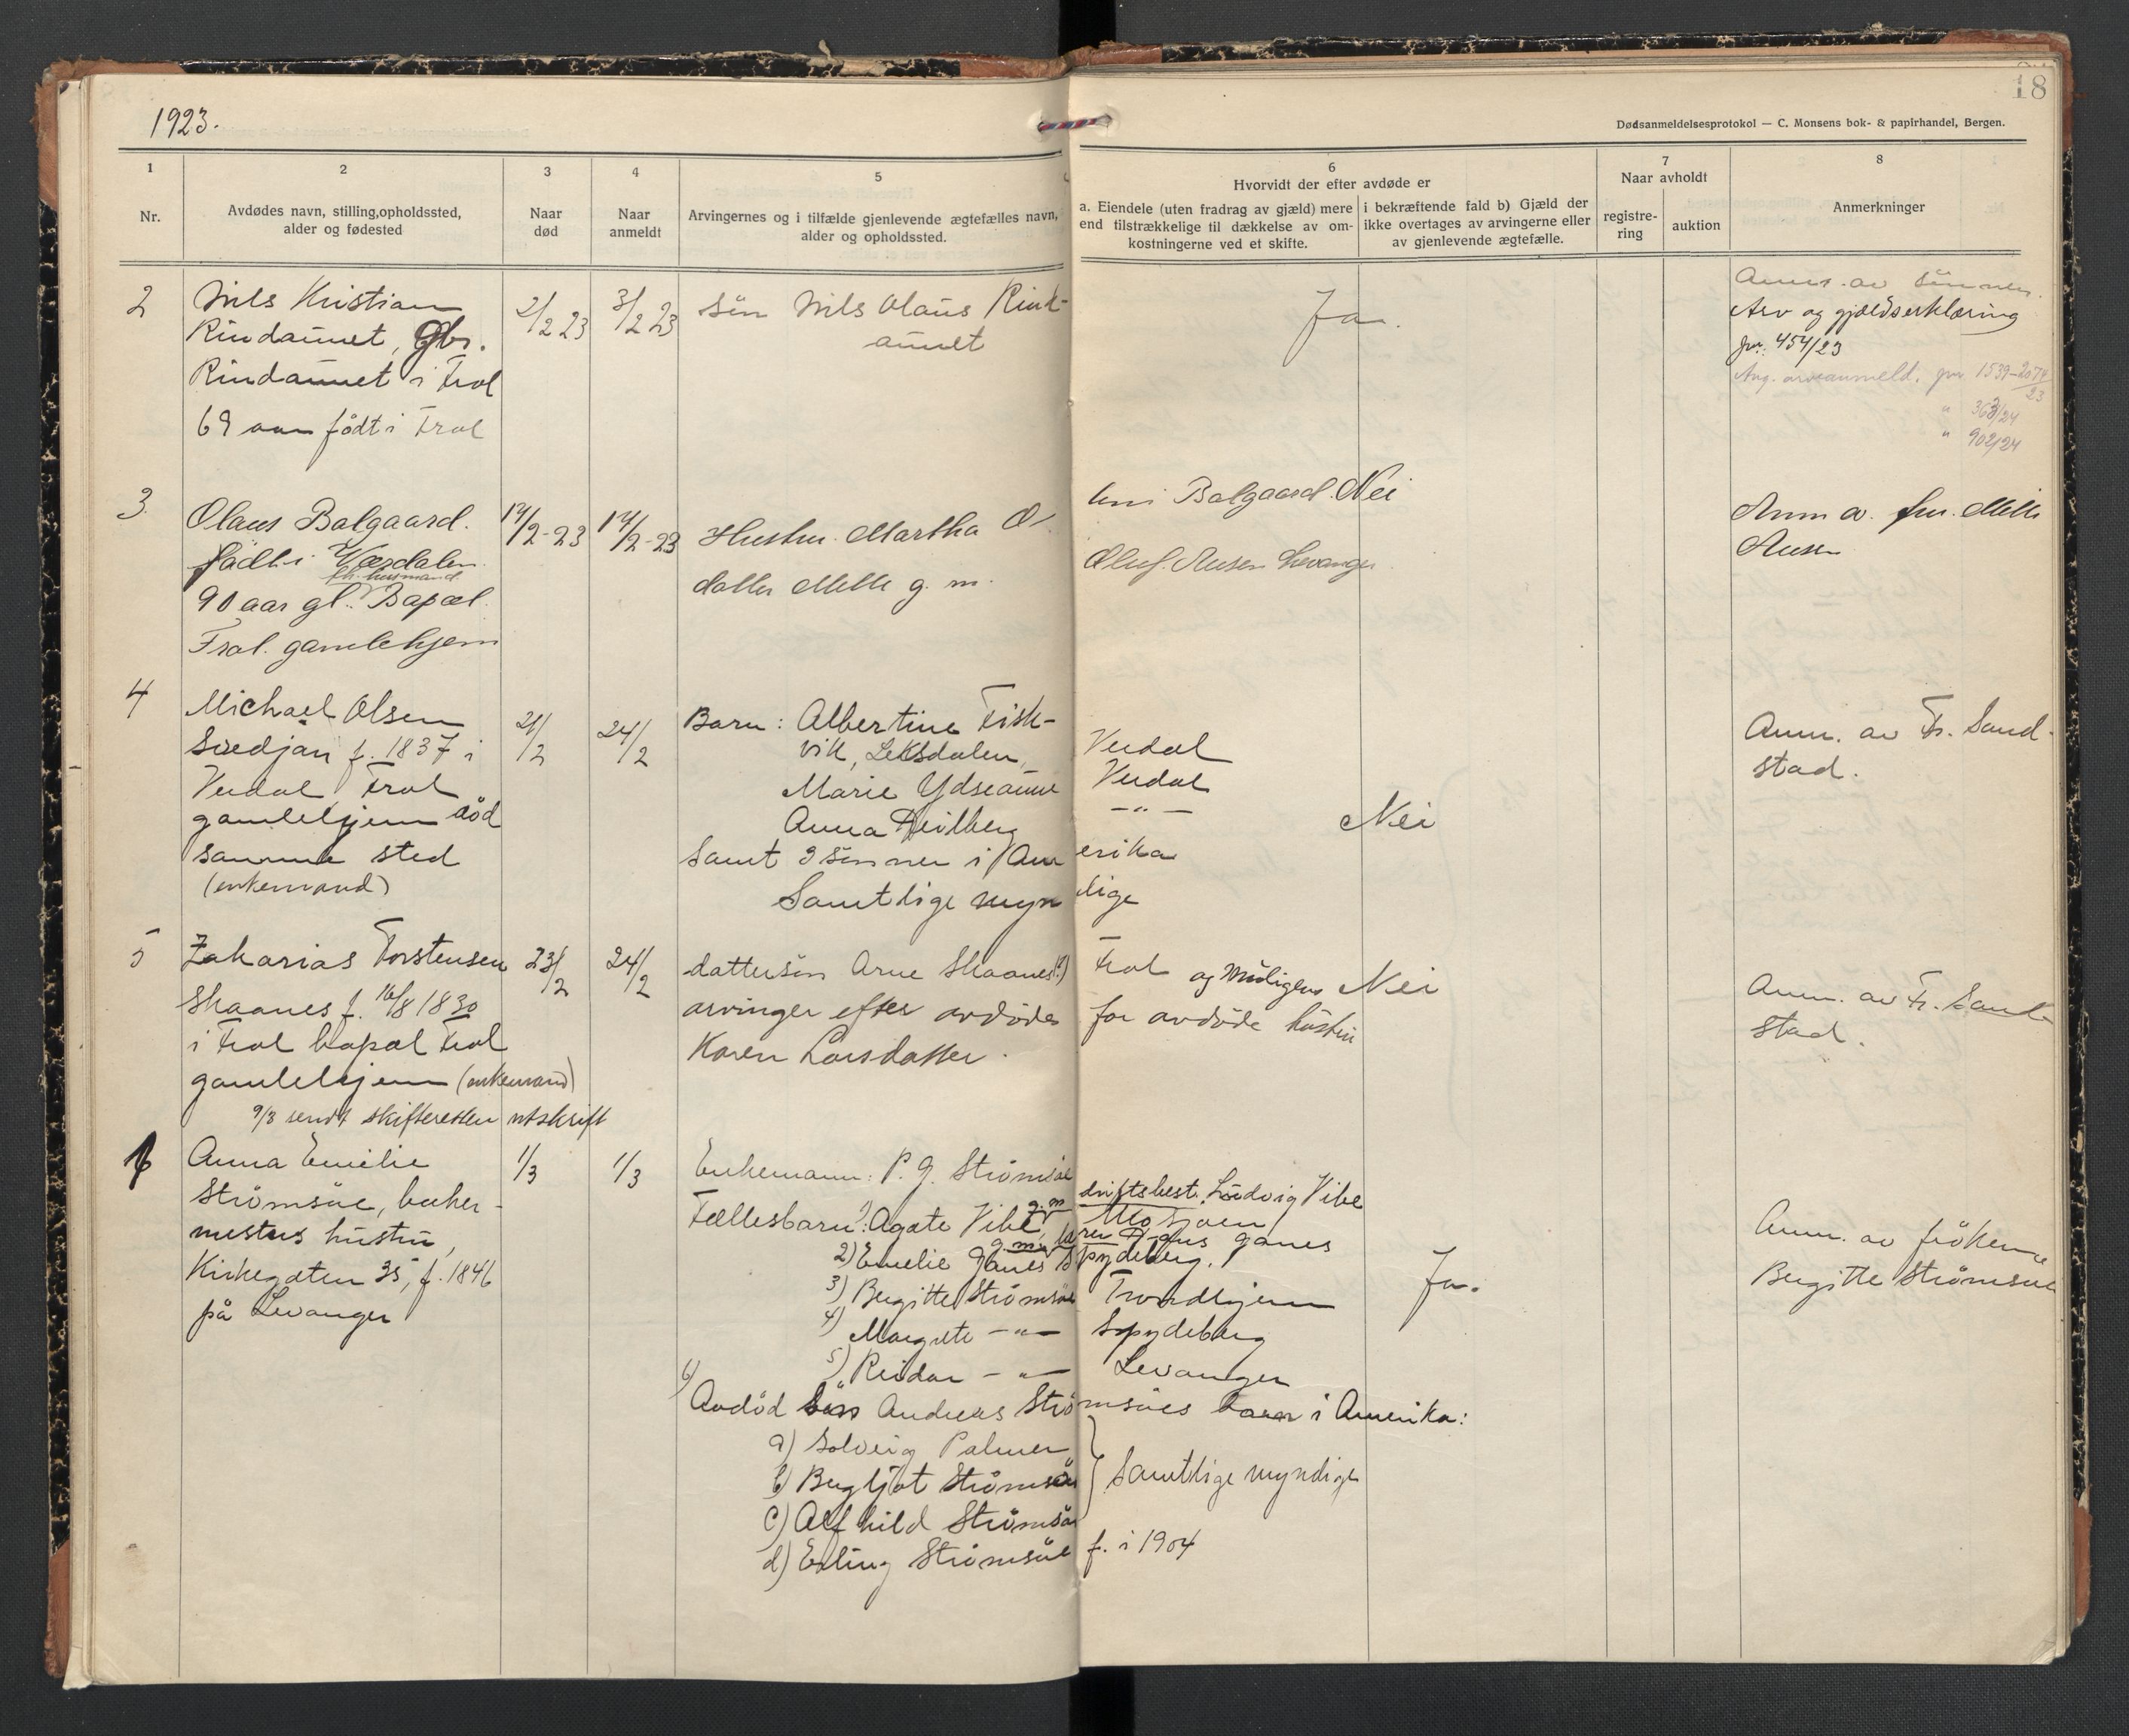 1923.
18
Dødsanmeldelsesprotokol — C. Monsens bok- & papirhandel, Bergen.
1 2 3 4 5 6 7 8
Nr.
Avdødes navn, stilling, opholdssted,
alder og fødested
Naar
død
Naar
anmeldt
Arvingernes og i tilfælde gjenlevende ægtefælles navn,
alder og opholdssted.
Hvorvidt der efter avdøde er
a. Eiendele (uten fradrag av gjæld) mere
end tilstrækkelige til dækkelse av om-
kostningerne ved et skifte.
i bekræftende fald b) Gjæld der
ikke overtages av arvingerne eller
av gjenlevende ægtefælle.
Naar avholdt
registre-
ring
auktion
Anmerkninger
2
Nils Kristian
Rindaunet, Gbr.
Rindaunet i Frol
69 aar født i Frol
2/2 23
3/2 23
Sön Nils Olaus Rind-
aunet
Ja.
Anm. av sönnen.
Arv og gjældserklæring
jnr. 454/23
Ang. arveanmeld. jnr 1539-2074/23
" 363/24
" 902/24
3
Olaus Balgaard.
født i Værdalen
fh. husmand
90 aar gl. Bapæl
Frol. gamlehjem
14/2-23
14/2-23
Hustru Martha O
Balgaard. Nei
datter Mette g. m.
Oluf. Ausen Levanger
Anm a. fru. Mette
Ausen
4
Michael Olsen
f. 1837 i
Verdal Frol
gamlehjem död
samme sted
(enkemand)
21/2
24/2
Barn: Albertine Fisk-
vik, Leksdalen, Verdal
Marie Ydseaune Verdal
Anna — " —
Samt 2 sönner i Amerika
Samtlige myndige
Nei
Anm. av Fr. Sand-
stad.
5
Zakarias Torstensen
Skaanes f. 16/8 1830
i Frol bopæl Frol
gamlehjem (enkemand)
9/3 sendt skifteretten utskrift
23/2
24/2
dattersön Arne Skaanes(?) Frol og muligens
arvinger efter avdödes for avdöde hustru
Karen Larsdatter.
Nei
Anm. av Fr. Sand-
stad.
6
Anna Emilie
Strömsöe, bøker-
mesters hustru,
Kirkegaten 35, f. 1846
på Levanger
1/3
1/3
Enkemann: P. G. Strömsöe
Fællesbarn: 1) Agate Vibe, g. m. driftsbest. Ludvig Vibe
Mosjöen
2) Emelie Ganes g. m. Ganes
Spydeberg.
3) Bergitte Strömsöe Trondhjem
4) Margrete — " — Spydeberg
5) Reidar — " — Levanger
6) Avdöd sön Andreas Strömsöes barn i Amerika:
a) Solveig Palmer
b) Bergljot Strömsöe } Samtlige myndige
c) Alfhild Strömsöe
d) Erling Strömsöe f. i 1904
Ja.
Anm. av fröken
Bergitte Strömsöe